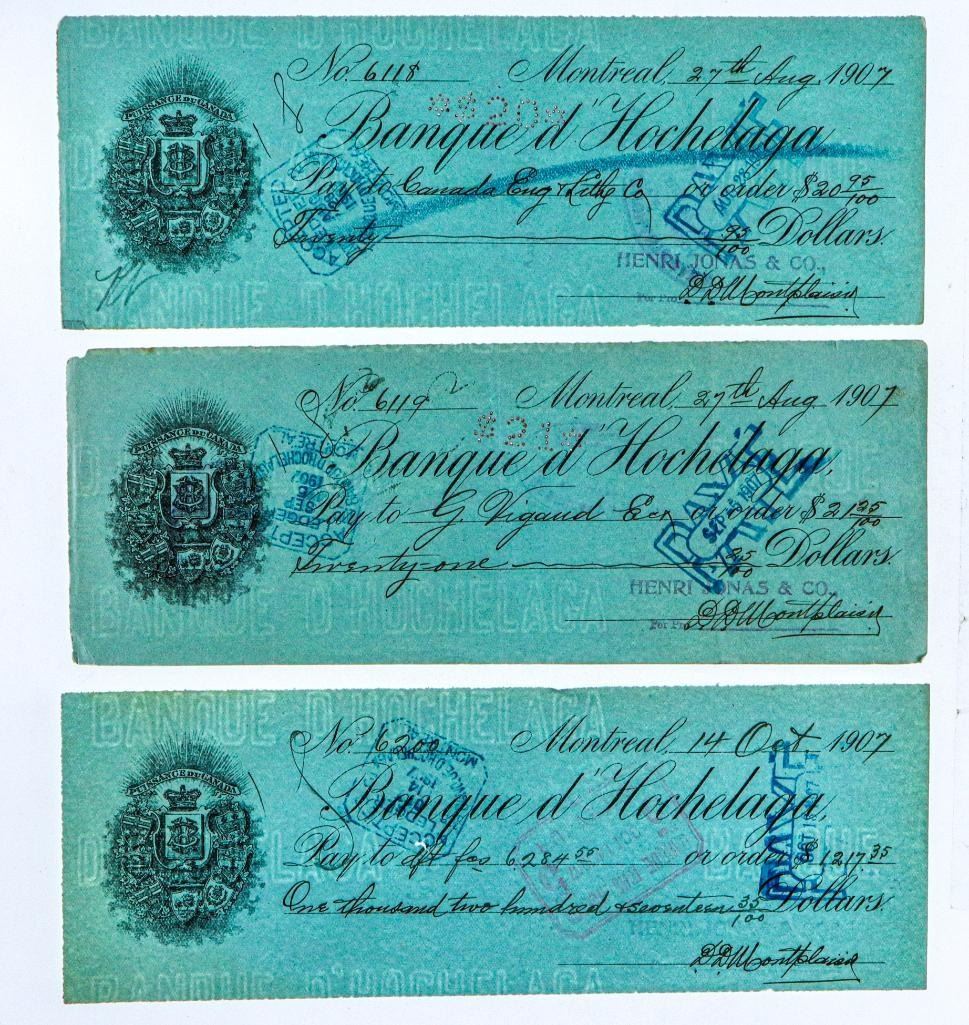 BANQUE D'HOCHELAGA
PUISSANCE DU CANADA
No. 6118 Montreal, 27th Aug. 1907
*$20*
Banque d'Hochelaga,
Pay to Canada Eng & Lithg Co or order $20 95/100
Twenty 95/100 Dollars.
HENRI JONAS & CO.,
D.D. Montplaisir
BANQUE D'HOCHELAGA
PUISSANCE DU CANADA
No. 6119 Montreal, 27th Aug 1907
$21
Banque d'Hochelaga,
BANQUE D'HOCHELAGA
MONTREAL
ACCEPTED
SEP 1907
Pay to G. Vigaud Ecr or order $21 25/100
SEP 1907
Twenty-one 25/100 Dollars.
HENRI JONAS & CO.,
BANQUE D'HOCHELAGA
D.D. Montplaisir
BANQUE D'HOCHELAGA
PUISSANCE DU CANADA
No. 6200 Montreal, 14 Oct. 1907
Banque d'Hochelaga,
ACCEPTED
14
Pay to dft fcs 6284 55 or order $1217 35
BANQUE
One thousand two hundred & seventeen 35/100 Dollars
D.D. Montplaisir
BANQUE D'HOCHELAGA